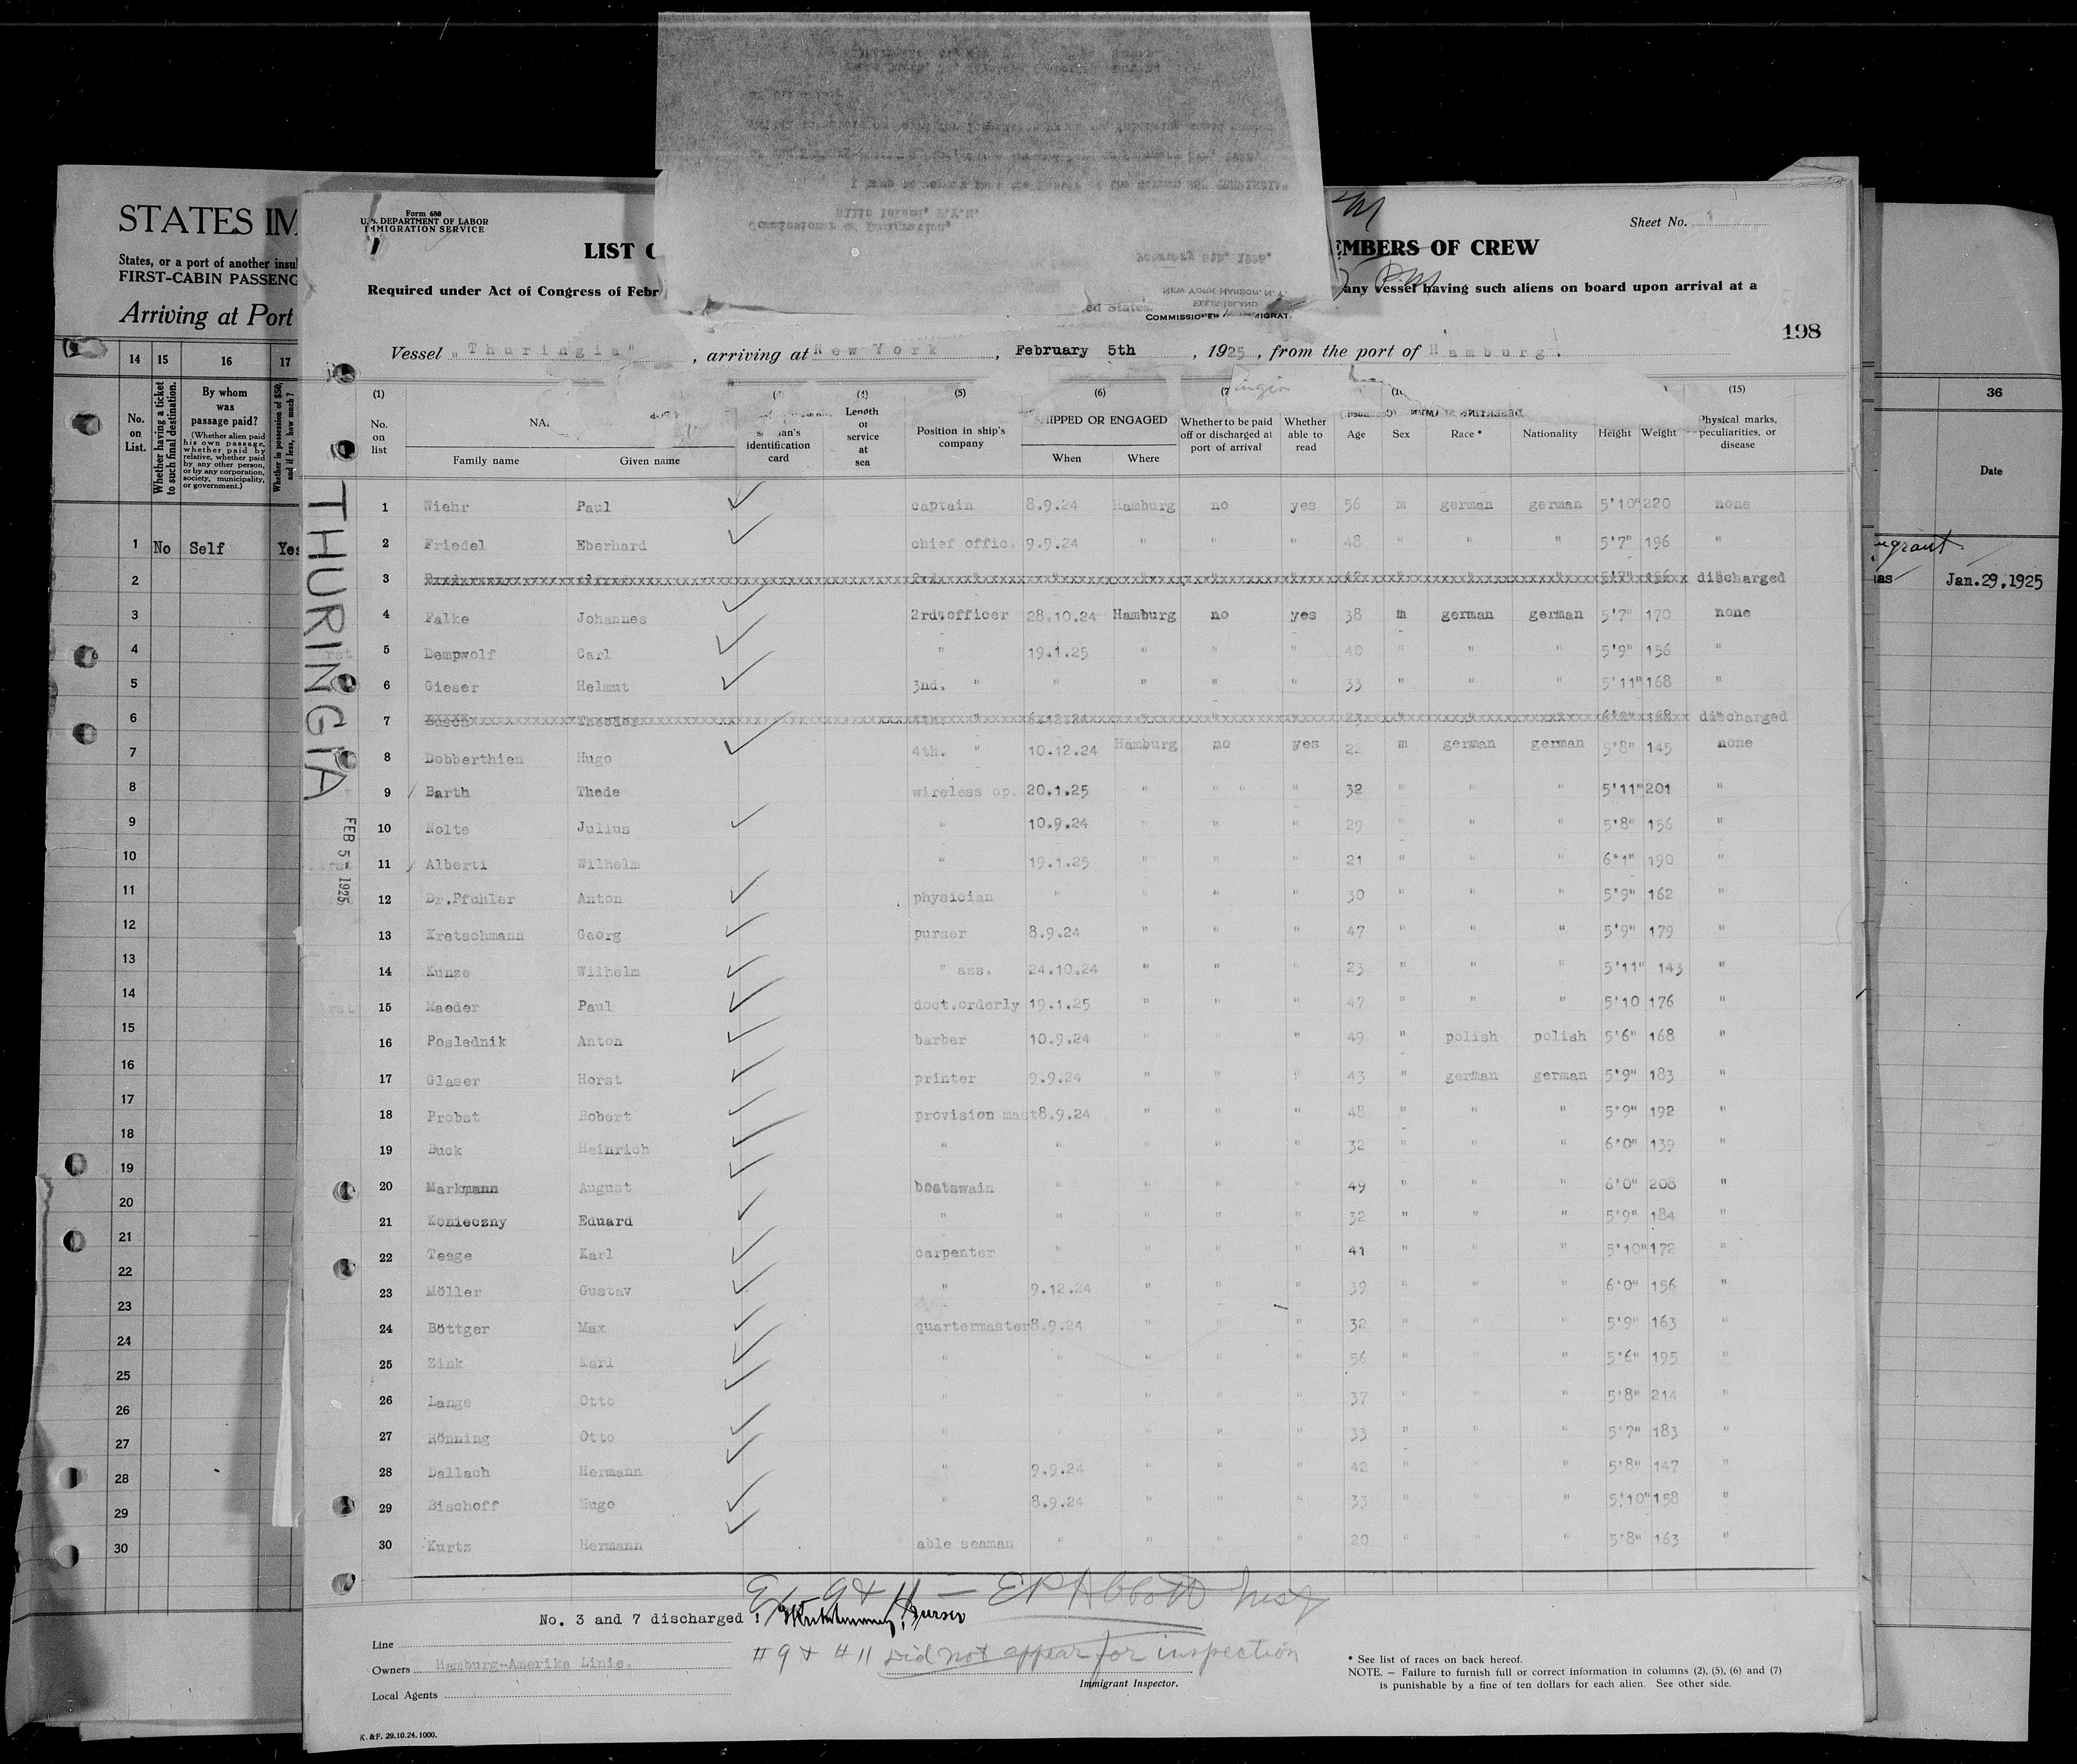 STATES IM
States, or a port of another insul
FIRST-CABIN PASSENG
Arriving at Port
14 15 16 17
No. on List.
Whether having a ticket to such final destination.
By whom was passage paid?
(Whether alien paid his own passage, whether paid by relative, whether paid by any other person, or by any corporation, society, municipality, or government.)
Whether in possession of $50, and if less, how much?
1 No Self Yes
2
3
4
5
6
7
8
9
10
11
12
13
14
15
16
17
18
19
20
21
22
23
24
25
26
27
28
29
30
Form 680
U. S. DEPARTMENT OF LABOR
IMMIGRATION SERVICE
Sheet No. 1
LIST O
EMBERS OF CREW
Required under Act of Congress of Febr
any vessel having such aliens on board upon arrival at a
ed States.
NEW YORK HARBOR, N.Y.
ELLIS ISLAND
198
Vessel „Thuringia", arriving at New York, February 5th, 1925, from the port of Hamburg.
(1) (4) (5) (6) (7 (15)
No. on list
Family name Given name
identification card
Length of service at sea
Position in ship's company
SHIPPED OR ENGAGED
When Where
Whether to be paid off or discharged at port of arrival
Whether able to read
Age Sex Race * Nationality Height Weight
Physical marks, peculiarities, or disease
THURINGIA
FEB 5- 1925
1 Wiehr Paul captain 8.9.24 Hamburg no yes 56 m german german 5'10" 220 none
2 Friedel Eberhard chief offic. 9.9.24 " " " 48 " " " 5'7" 196 "
3 discharged
4 Falke Johannes 2rd.officer 28.10.24 Hamburg no yes 38 m german german 5'7" 170 none
5 Dempwolf Carl " 19.1.25 " " " 40 " " " 5'9" 156 "
6 Gieser Helmut 3nd. " " " " " 33 " " " 5'11" 168 "
7 Busch Theodor discharged
8 Dobberthien Hugo 4th. " 10.12.24 Hamburg no yes 22 m german german 5'8" 145 none
9 Barth Thede wireless op. 20.1.25 " " " " 32 " " " 5'11" 201 "
10 Nolte Julius " 10.9.24 " " " 29 " " " 5'8" 156 "
11 Alberti Wilhelm " 19.1.25 " " " 21 " " " 6'1" 190 "
12 Dr.Pfuhler Anton physician " " " " 30 " " " 5'9" 162 "
13 Kretschmann Georg purser 8.9.24 " " " 47 " " " 5'9" 179 "
14 Kunze Wilhelm " ass. 24.10.24 " " " 23 " " " 5'11" 143 "
15 Maeder Paul doct.orderly 19.1.25 " " " 47 " " " 5'10 176 "
16 Poslednik Anton barber 10.9.24 " " " 49 " polish polish 5'6" 168 "
17 Glaser Horst printer 9.9.24 " " " 43 " german german 5'9" 183 "
18 Probst Robert provision mast 8.9.24 " " " 48 " " " 5'9" 192 "
19 Buck Heinrich " " " " " 32 " " " 6'0" 139 "
20 Markmann August boatswain " " " " 49 " " " 6'0" 208 "
21 Konieczny Eduard " " " " " 32 " " " 5'9" 184 "
22 Teege Karl carpenter " " " " 41 " " " 5'10" 172 "
23 Möller Gustav " 9.12.24 " " " 39 " " " 6'0" 156 "
24 Böttger Max quartermaster 8.9.24 " " " 32 " " " 5'9" 163 "
25 Zink Karl " " " " " 56 " " " 5'6" 195 "
26 Lange Otto " " " " " 37 " " " 5'8" 214 "
27 Rönning Otto " " " " " 33 " " " 5'7" 183 "
28 Dallach Hermann " 9.9.24 " " " 42 " " " 5'8" 147 "
29 Bischoff Hugo " 8.9.24 " " " 33 " " " 5'10" 158 "
30 Kurtz Hermann able seaman " " " " 20 " " " 5'8" 163 "
Ex 9 & 11 — EP Abbott Insp
No. 3 and 7 discharged ! Purser
#9 & #11 Did not appear for inspection
Line
Owners Hamburg-Amerika Linie.
Local Agents
Immigrant Inspector.
* See list of races on back hereof.
NOTE. — Failure to furnish full or correct information in columns (2), (5), (6) and (7)
is punishable by a fine of ten dollars for each alien. See other side.
K. & F. 29.10.24. 1000.
36
Date
Jan.29,1925